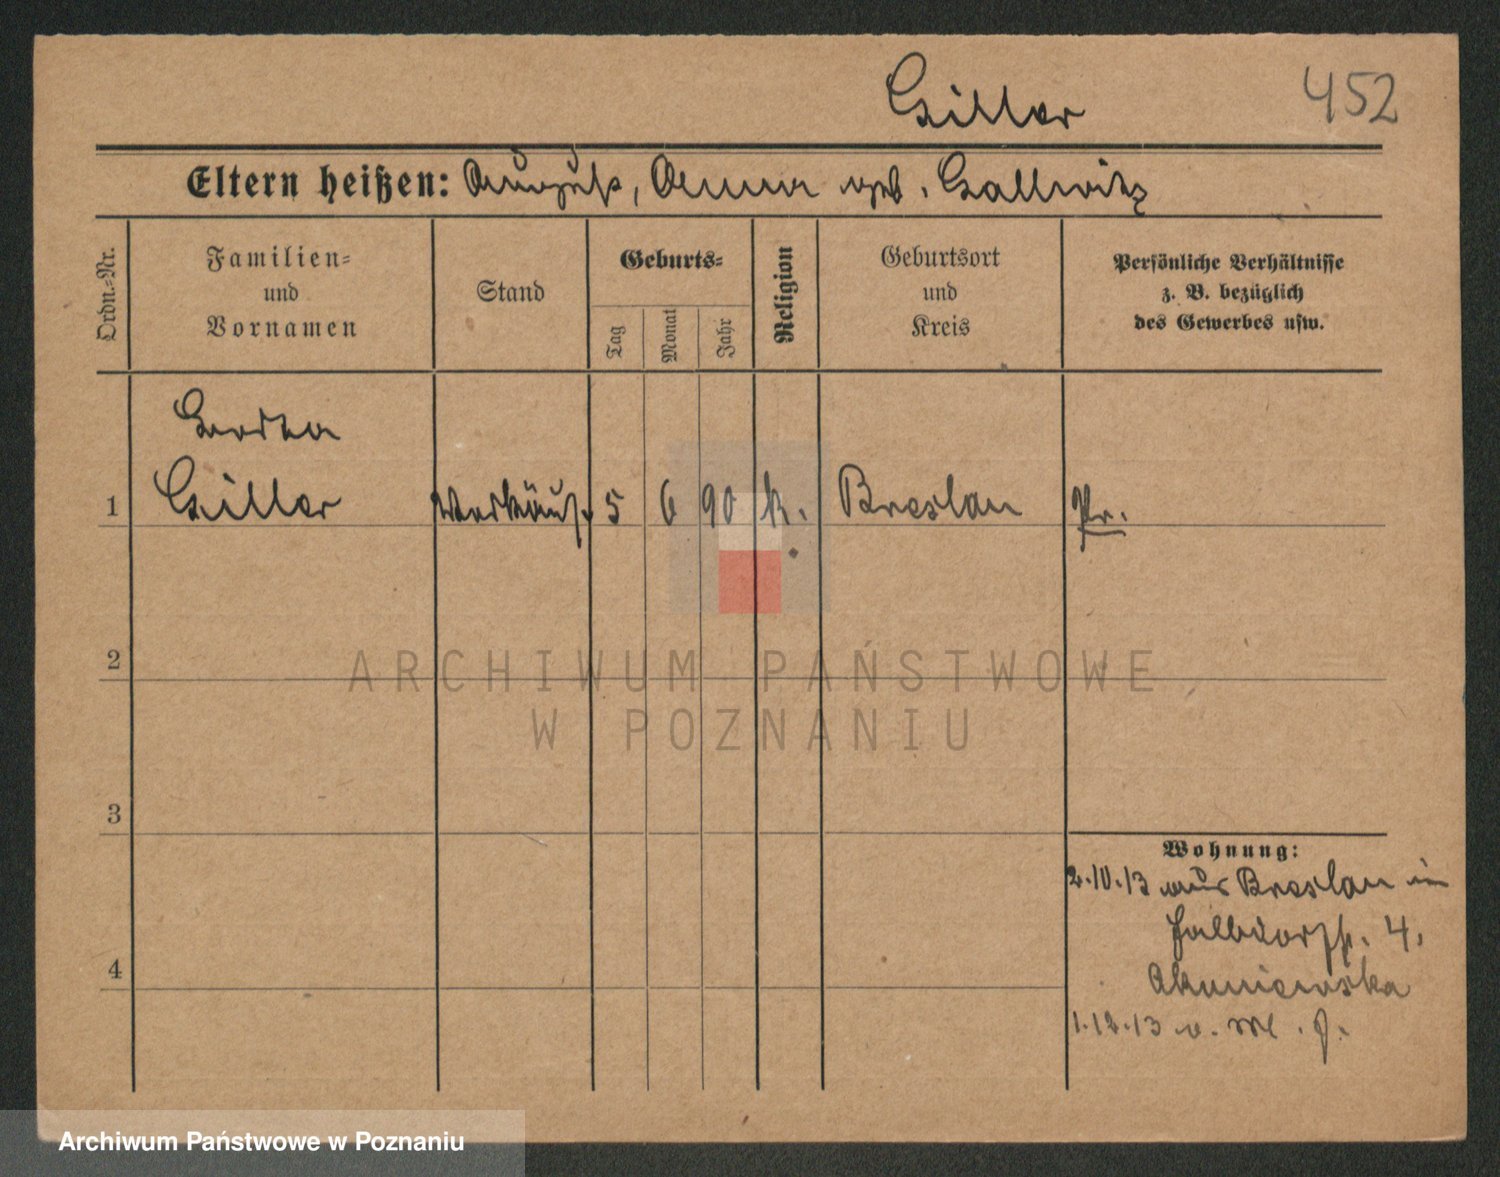 Giller 452
Eltern heißen: August, Anna geb. Gallwitz
Ordn.-Nr.
Familien-
und
Vornamen
Stand
Geburts-
Tag
Monat
Jahr
Religion
Geburtsort
und
Kreis
Persönliche Verhältnisse
z. B. bezüglich
des Gewerbes usw.
Gertra
1 Giller Verkäuf. 5 6 90 k. Breslau Pr.
2
ARCHIWUM PAŃSTWOWE
W POZNANIU
3
Wohnung:
2.10.13 aus Breslau in
4.
4
1.12.13
Archiwum Państwowe w Poznaniu